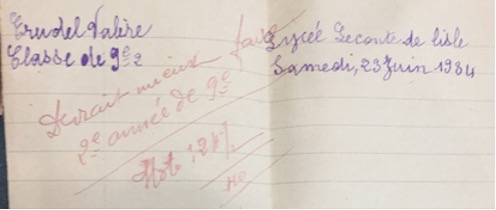 Trudel Valère
Classe de 9e 2
Lycée Leconte de lisle
Samedi, 23 Juin 1934
Devrait mieux faire
2e année de 9e
Note :